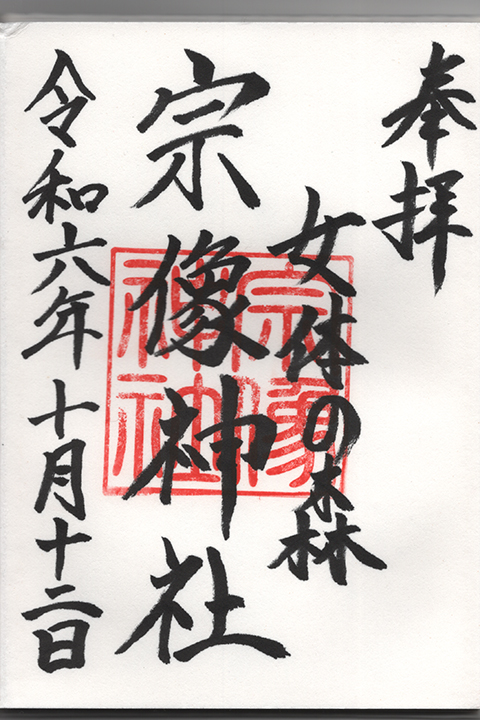 奉拝
女体の森
宗像神社
令和六年十月十二日
宗像
神社